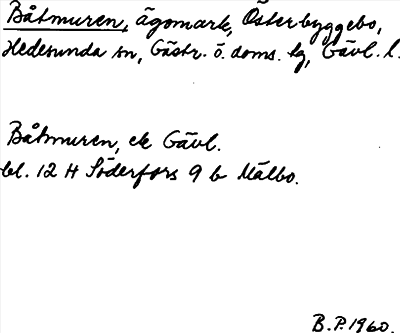 Båtmuren, ägomark, Österbyggebo,
Hedesunda sn, Gästr. ö. doms. lg, Gävl. l.
Båtmuren, ek Gävl.
bl. 12 H Söderfors 9 b Mälbo.
B.P. 1960.